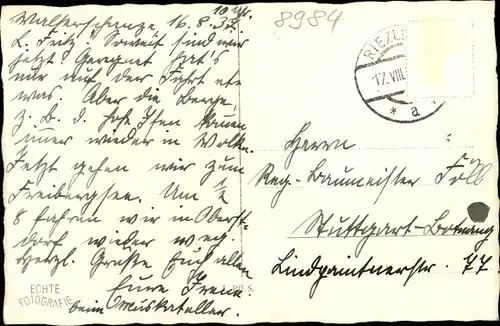 10 Uhr.
Walserschanze, 16.8.32.
L. Fritz! Soweit sind wir
jetzt. Geregnet hat's
nur auf der Fahrt et-
was. Aber die Berge,
z. B. d. hohe Ifen kommen
immer wieder in Wolken.
Jetzt gehen wir zum
Freibergsee. Um ½
8 fahren wir in Oberst-
dorf wieder weg.
Herzl. Grüße Euch allen
Eure
beim Muskateller.
8984
RIEZL
17.VIII.
* a
Herrn
Reg.-Baumeister Föll
Stuttgart-Botnang
Lindpaintnerstr. 77
ECHTE
FOTOGRAFIE